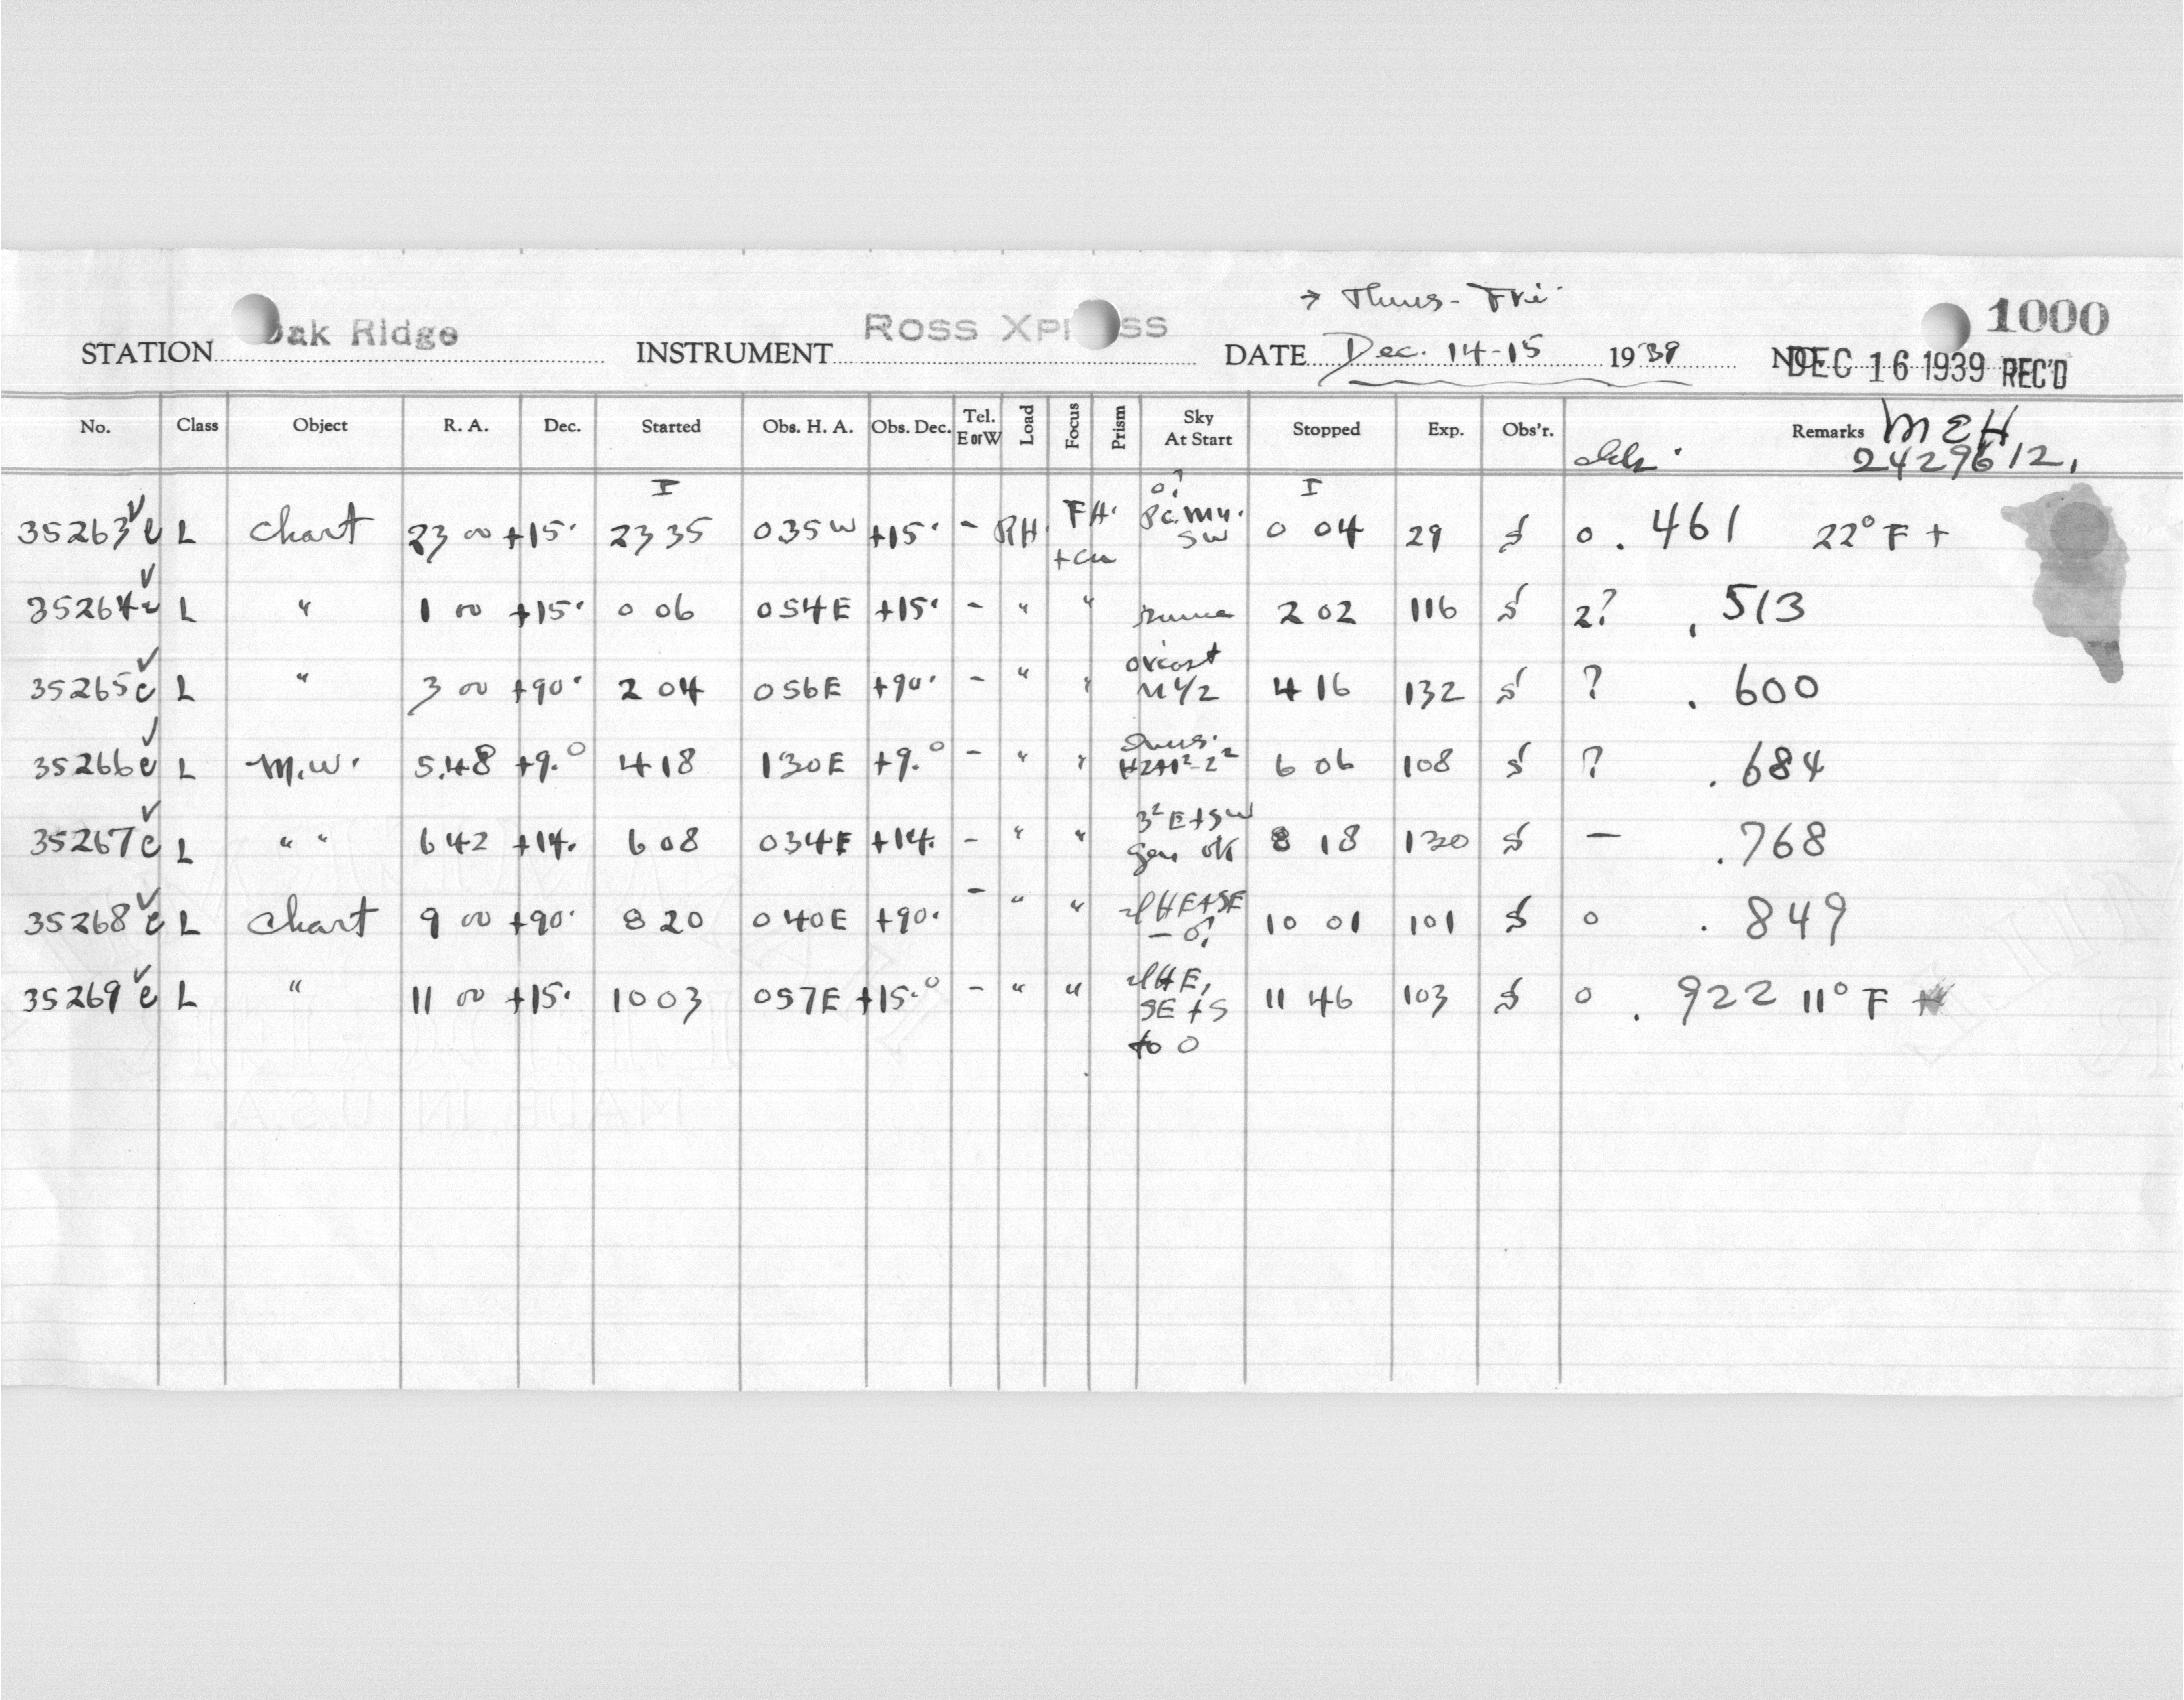 → Thurs - Fri.
STATION Oak Ridge INSTRUMENT Ross Xpress DATE Dec. 14-15 1939 No. 1000
DEC 16 1939 REC'D
No. Class Object R. A. Dec. Started Obs. H. A. Obs. Dec. Tel. E or W Load Focus Prism Sky At Start Stopped Exp. Obs'r. Remarks MEH
2429612.
35263 c L Chart 23 00 +15° 23 35 0 35 W +15° - RH. FH. + cu SW 0 04 29 0 .461 22° F +
35264 c L " 1 00 +15° 0 06 0 54 E +15° - " " same 2 02 116 2? .513
35265 c L " 3 00 +90° 2 04 0 56 E +90° - " " 4 16 132 ? .600
35266 c L M.W. 5.48 +9.° 4 18 1 30 E +9.° - " " 6 06 108 ? .684
35267 c L " " 6 42 +14. 6 08 0 34 E +14. - " " 3² E + SW gen ok 8 18 130 — .768
35268 c L Chart 9 00 +90° 8 20 0 40 E +90. - " " HE+SE - 0? 10 01 101 0 .849
35269 c L " 11 00 +15° 10 03 0 57 E +15.° - " " HE, SE + S to 0 11 46 103 0 .922 11° F +
MADE IN U.S.A.